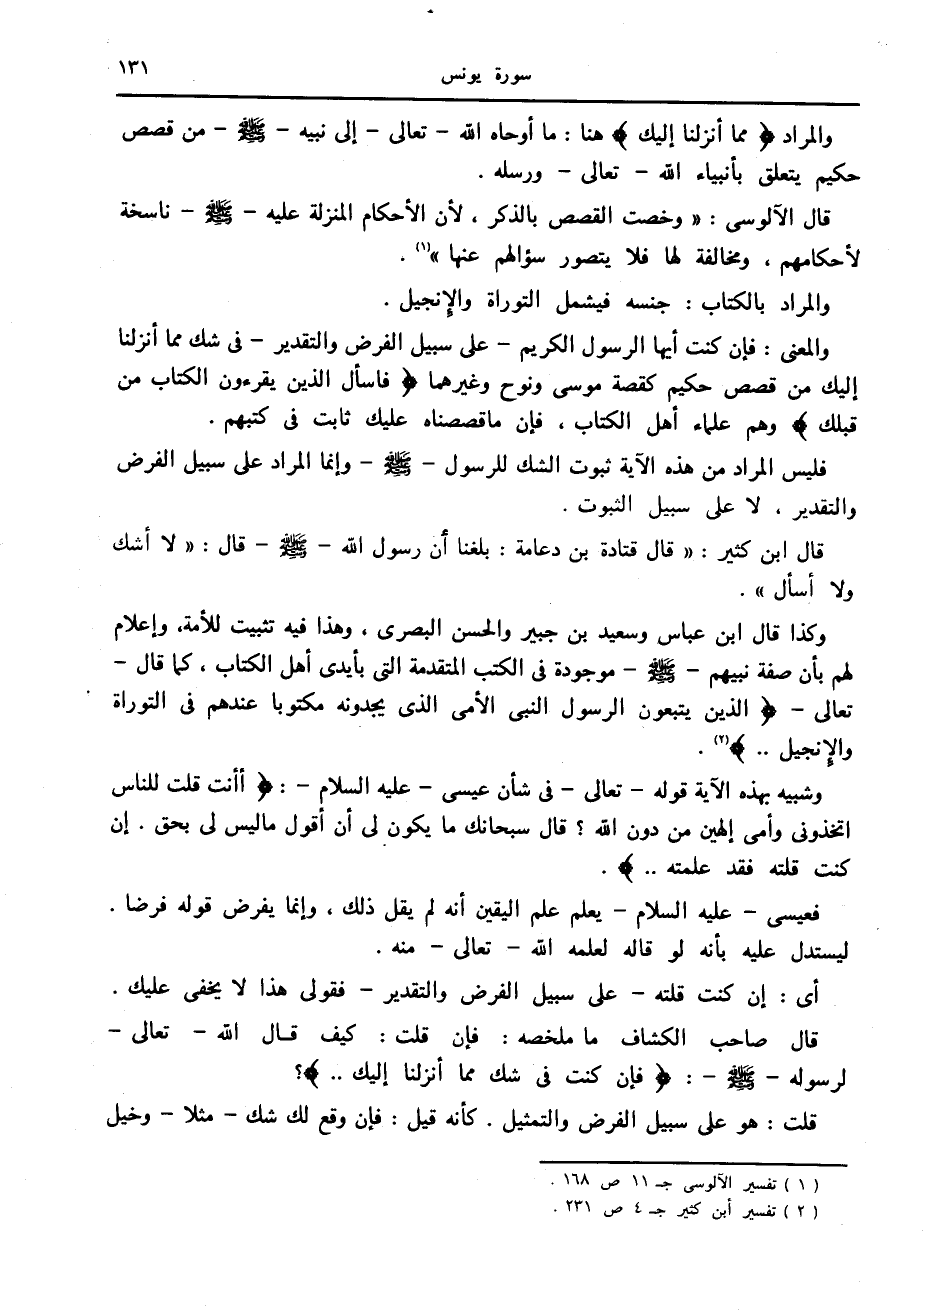 سورة يونس ١٣١
والمراد ﴿ مما أنزلنا إليك ﴾ هنا : ما أوحاه الله – تعالى – إلى نبيه – ﷺ – من قصص
حكيم يتعلق بأنبياء الله – تعالى – ورسله .
قال الآلوسى : « وخصت القصص بالذكر ، لأن الأحكام المنزلة عليه – ﷺ – ناسخة
لأحكامهم ، ومخالفة لها فلا يتصور سؤالهم عنها »(١) .
والمراد بالكتاب : جنسه فيشمل التوراة والإنجيل .
والمعنى : فإن كنت أيها الرسول الكريم – على سبيل الفرض والتقدير – فى شك مما أنزلنا
إليك من قصص حكيم كقصة موسى ونوح وغيرهما ﴿ فاسأل الذين يقرءون الكتاب من
قبلك ﴾ وهم علماء أهل الكتاب ، فإن ماقصصناه عليك ثابت فى كتبهم .
فليس المراد من هذه الآية ثبوت الشك للرسول – ﷺ – وإنما المراد على سبيل الفرض
والتقدير ، لا على سبيل الثبوت .
قال ابن كثير : « قال قتادة بن دعامة : بلغنا أن رسول الله – ﷺ – قال : « لا أشك
ولا أسأل » .
وكذا قال ابن عباس وسعيد بن جبير والحسن البصرى ، وهذا فيه تثبيت للأمة، وإعلام
لهم بأن صفة نبيهم – ﷺ – موجودة فى الكتب المتقدمة التى بأيدى أهل الكتاب ، كما قال –
تعالى – ﴿ الذين يتبعون الرسول النبى الأمى الذى يجدونه مكتوبا عندهم فى التوراة
والإنجيل .. ﴾(٢) .
وشبيه بهذه الآية قوله – تعالى – فى شأن عيسى – عليه السلام – : ﴿ أأنت قلت للناس
اتخذونى وأمى إلهين من دون الله ؟ قال سبحانك ما يكون لى أن أقول ماليس لى بحق . إن
كنت قلته فقد علمته .. ﴾ .
فعيسى – عليه السلام – يعلم علم اليقين أنه لم يقل ذلك ، وإنما يفرض قوله فرضا .
ليستدل عليه بأنه لو قاله لعلمه الله – تعالى – منه .
أى : إن كنت قلته – على سبيل الفرض والتقدير – فقولى هذا لا يخفى عليك .
قال صاحب الكشاف ما ملخصه : فإن قلت : كيف قال الله – تعالى –
لرسوله – ﷺ – : ﴿ فإن كنت فى شك مما أنزلنا إليك .. ﴾؟
قلت : هو على سبيل الفرض والتمثيل . كأنه قيل : فإن وقع لك شك – مثلا – وخيل
( ١ ) تفسير الآلوسى جـ ١١ ص ١٦٨ .
( ٢ ) تفسير أبن كثير جـ ٤ ص ٢٣١ .